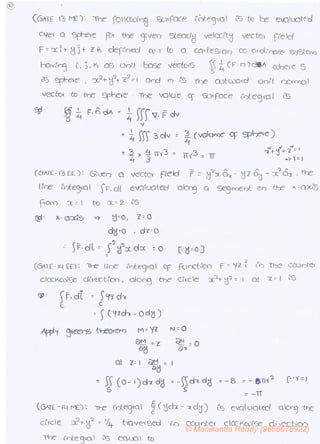 (GATE 13 ME): The following surface integral is to be evaluated
over a sphere for the given steady velocity vector field
F = xi + yj + zk defined w.r to a cartesian co.ordinate system
having i, j, k as unit base vectors ∬ 1/4 (F.n) dA where S
is sphere, x²+y²+z²=1 and n is the outward unit normal
vector to the sphere. The value of surface integral is
sol: ∯ 1/4 F.n̂ dA = 1/4 ∭ ∇.F dv
= 1/4 ∭ 3 dv = 3/4 (volume of sphere)
= 3/4 × 4/3 πr³ = πr³ = π x²+y²+z²=1 ⇒ r=1
(GATE-13 EE): Given a vector field F = y²x âx - yz ây - x² âz, the
line integral ∫F.dl evaluated along a segment on the x-axis
from x=1 to x=2 is
sol: x-axis ⇒ y=0, z=0
dy=0 . dz=0
∴ ∫F.dl = ∫y²x dx = 0 [∵y=0]
(GATE-14 EE): The line integral of function F = yzi in the counter
clockwise direction, along the circle x²+y²=1 at z=1 is
sol: ∫F.dl = ∫yz dx
= ∫(yzdx - 0dy)
Apply greens theorem M=yz N=0
∂M/∂y = z ∂N/∂x = 0
at z=1 ∂M/∂y = 1
= ∬(0-1)dx dy = -∬dx dy = -S = -πr² [∵r=1
= -π
(GATE-14 ME): The integral ∮(ydx - xdy) is evaluated along the
circle x²+y² = 1/4, traversed in counter clockwise direction
The integral is equal to
© Manikantta Reddy (9666678922)